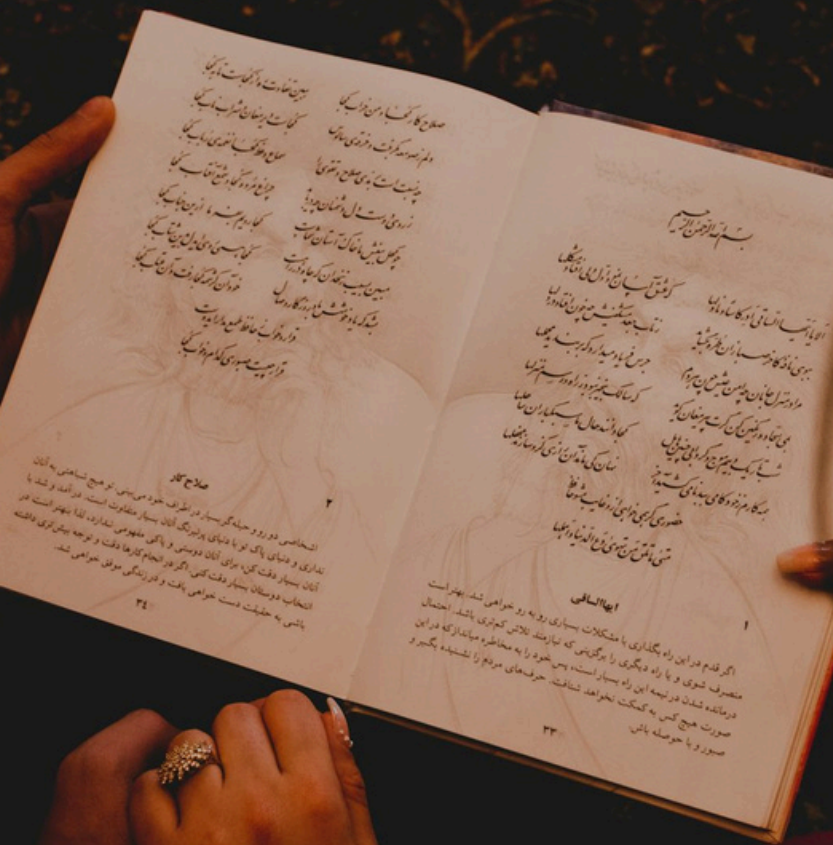 بسم الله الرحمن الرحیم
الا یا ایها الساقی ادر کاسا و ناولها
که عشق آسان نمود اول ولی افتاد مشکلها
ببوی نافه کاخر صبا زان طره بگشاید
ز تاب جعد مشکینش چه خون افتاد در دلها
مرا در منزل جانان چه امن عیش چون هر دم
جرس فریاد میدارد که بربندید محملها
بمی سجاده رنگین کن گرت پیر مغان گوید
که سالک بیخبر نبود ز راه و رسم منزلها
شب تاریک و بیم موج و گردابی چنین هایل
کجا دانند حال ما سبکباران ساحلها
همه کارم ز خود کامی ببدنامی کشید آخر
نهان کی ماند آن رازی کزو سازند محفلها
حضوری گر همی خواهی ازو غایب مشو حافظ
متی ما تلق من تهوی دع الدنیا و اهملها
۱
ایهاالساقی
اگر قدم در این راه بگذاری با مشکلات بسیاری رو به رو خواهی شد. بهتر است
منصرف شوی و یا راه دیگری را برگزینی که نیازمند تلاش کم‌تری باشد. احتمال
درمانده شدن در نیمه این راه بسیار است، پس خود را به مخاطره میانداز که در این
صورت هیچ کس به کمکت نخواهد شتافت. حرف‌های مردم را نشنیده بگیر و
صبور و با حوصله باش.
۳۳
صلاح کار کجا و من خراب کجا
ببین تفاوت ره از کجاست تا بکجا
دلم ز صومعه بگرفت و خرقه سالوس
کجاست دیر مغان و شراب ناب کجا
چه نسبت است برندی صلاح و تقوی را
سماع وعظ کجا نغمه رباب کجا
ز روی دوست دل دشمنان چه دریابد
چراغ مرده کجا شمع آفتاب کجا
چو کحل بینش ما خاک آستان شماست
کجا رویم بفرما ازین جناب کجا
مبین بسیب زنخدان که چاه در راهست
کجا همی روی ای دل بدین شتاب کجا
بشد که یاد خوشش باد روزگار وصال
خود آن کرشمه کجا رفت و آن عتاب کجا
قرار و خواب ز حافظ طمع مدار ای دوست
قرار چیست صبوری کدام و خواب کجا
۲
صلاح کار
اشخاصی دورو و حیله‌گر بسیار در اطراف خود می‌بینی. تو هیچ شباهتی به آنان
نداری و دنیای پاک تو با دنیای پرنیرنگ آنان بسیار متفاوت است. در آمد و شد با
آنان بسیار دقت کن، برای آنان دوستی و پاکی مفهومی ندارد، لذا بهتر است در
انتخاب دوستان بسیار دقت کنی. اگر در انجام کارها دقت و توجه بیش‌تری داشته
باشی به حقیقت دست خواهی یافت و در زندگی موفق خواهی شد.
۳۴